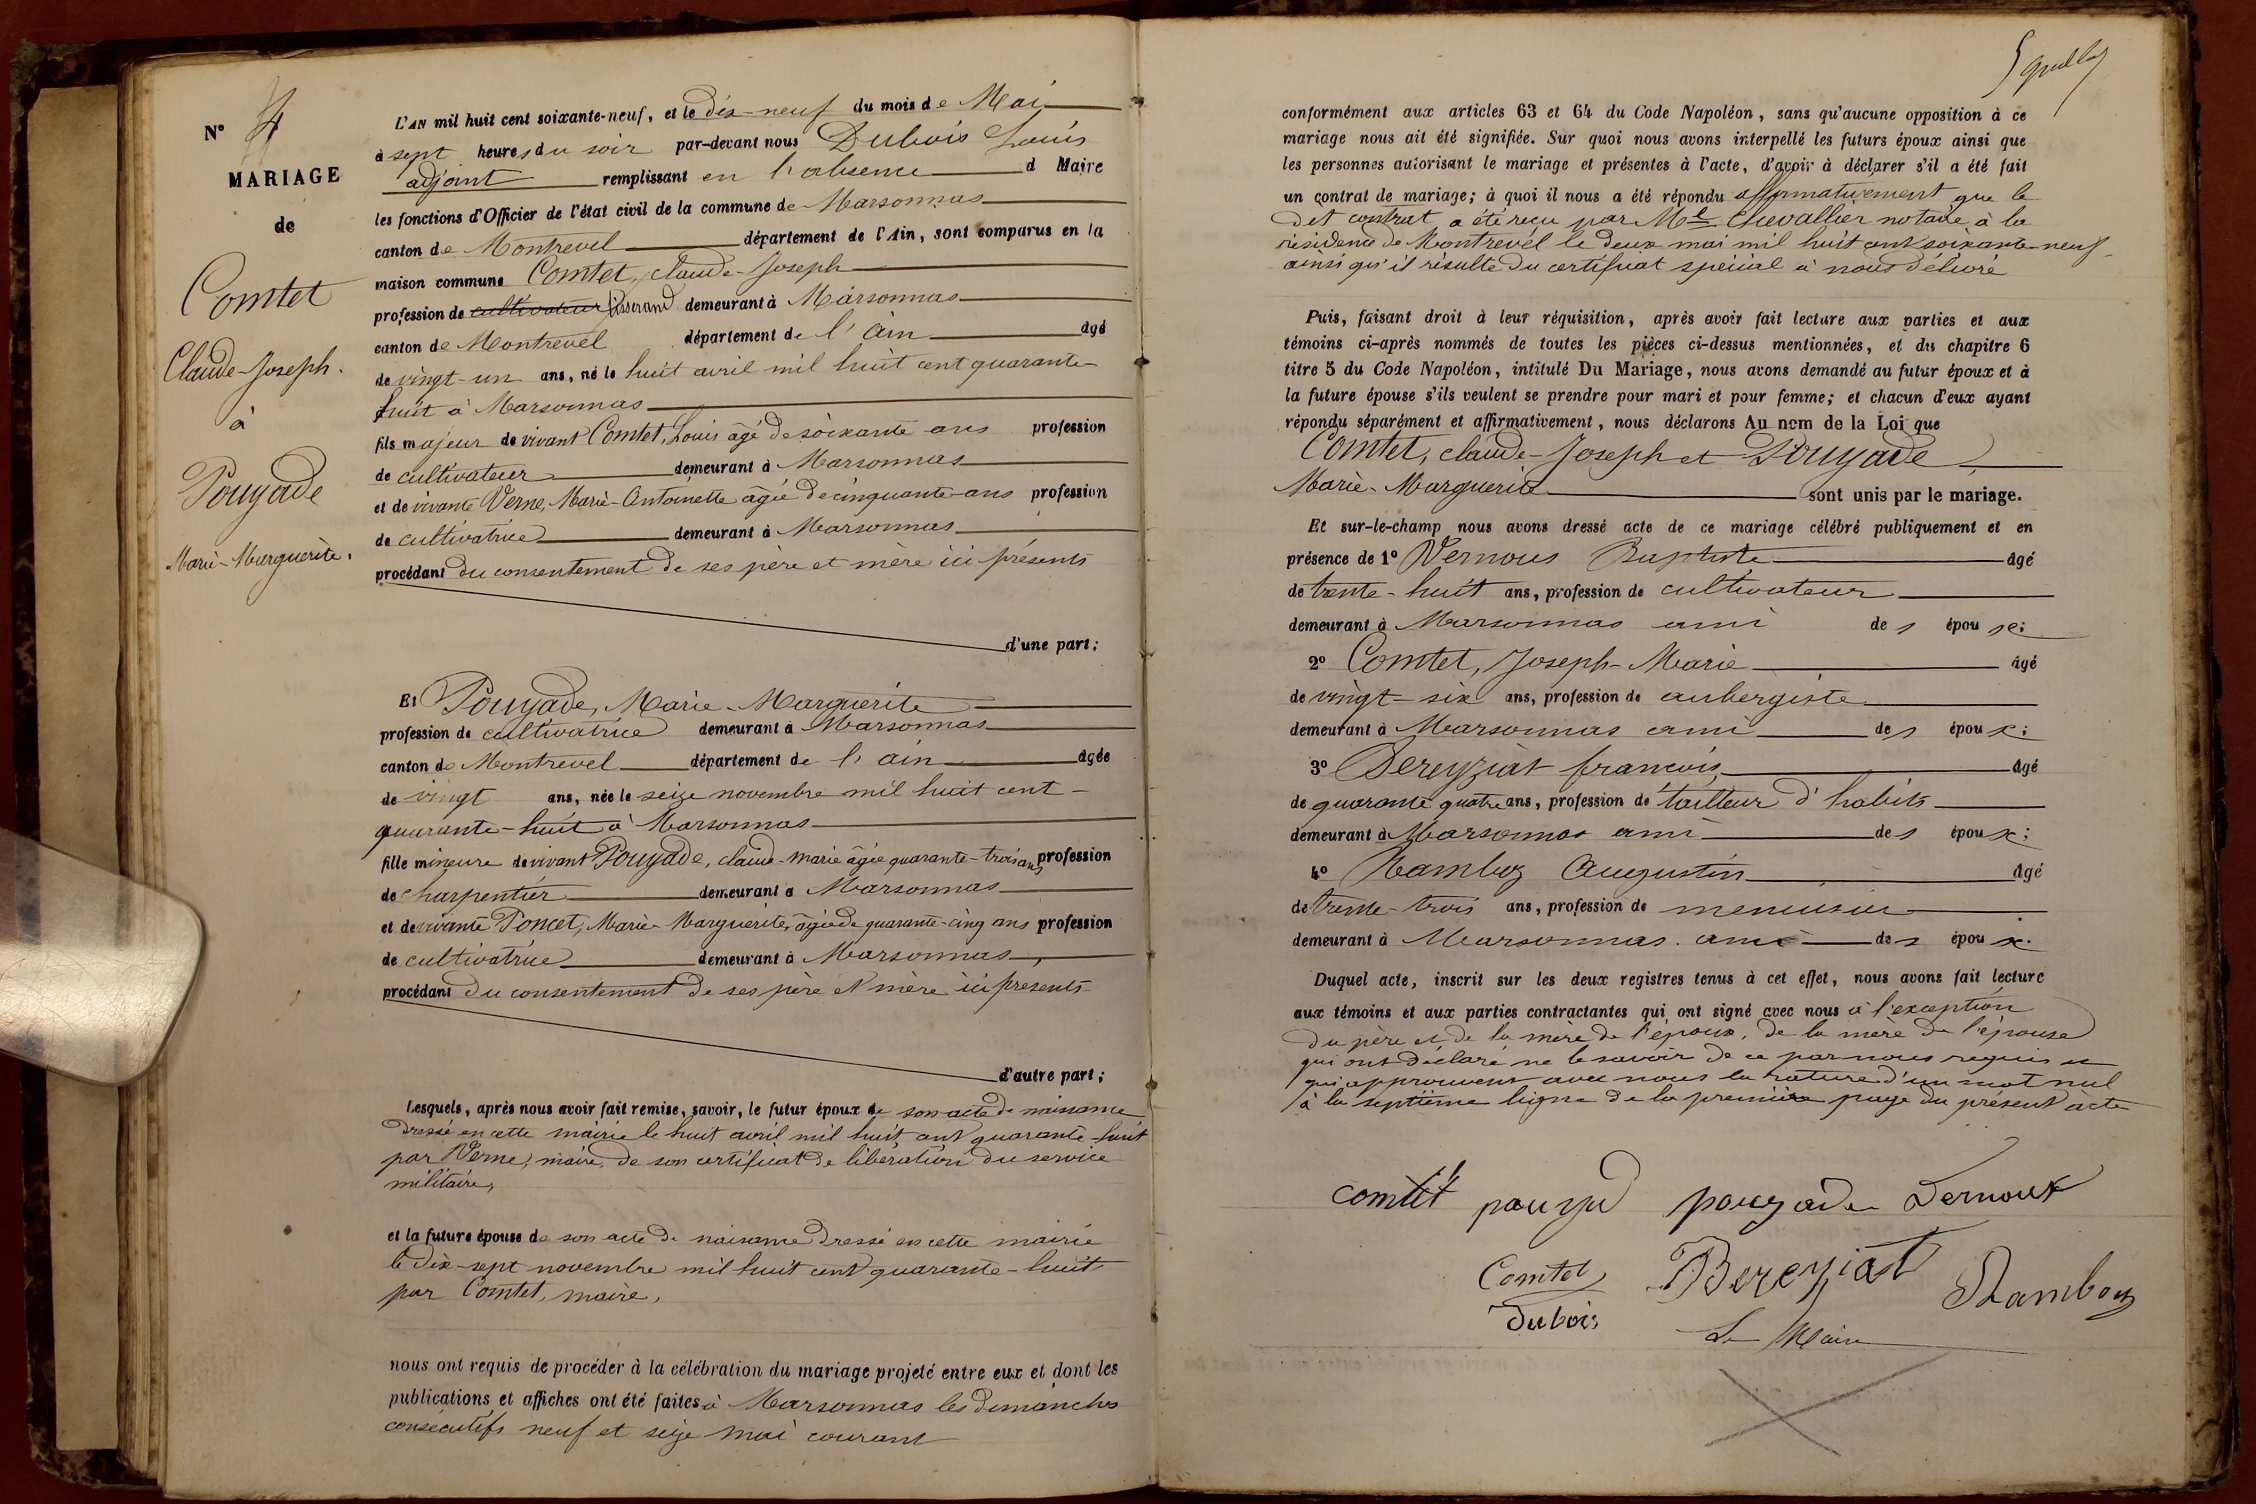 N° 4
MARIAGE
de
Comtet
Claude-Joseph.
à
Pouyade
Marie-Marguerite.
L'AN mil huit cent soixante-neuf, et le dix-neuf du mois de Mai
à sept heures du soir par-devant nous Dubois Louis
adjoint remplissant en l'absence d Maire
les fonctions d'Officier de l'état civil de la commune de Marsonnas
canton de Montrevel département de l'Ain, sont comparus en la
maison commune Comtet, Claude-Joseph
profession de cultivateur tisserand demeurant à Marsonnas
canton de Montrevel département de l'Ain âgé
de vingt-un ans, né le huit avril mil huit cent quarante-
huit à Marsonnas
fils majeur de vivant Comtet, Louis âgé de soixante ans profession
de cultivateur demeurant à Marsonnas
et de vivante Verne, Marie-Antoinette âgée de cinquante ans profession
de cultivatrice demeurant à Marsonnas
procédant du consentement de ses père et mère ici présents
d'une part;
Et Pouyade, Marie-Marguerite
profession de cultivatrice demeurant à Marsonnas
canton de Montrevel département de l'ain âgée
de vingt ans, née le seize novembre mil huit cent-
quarante-huit à Marsonnas
fille mineure de vivant Pouyade, claude-marie âgée quarante-trois ans profession
de charpentier demeurant à Marsonnas
et de vivante Poncet, Marie-Marguerite, âgée de quarante-cinq ans profession
de cultivatrice demeurant à Marsonnas,
procédant du consentement de ses père et mère ici présents
d'autre part;
Lesquels, après nous avoir fait remise, savoir, le futur époux de son acte de naissance
dressé en cette mairie le huit avril mil huit cent quarante-huit
par Verne, maire, de son certificat de libération du service
militaire,
et la future épouse de son acte de naissance dressé en cette mairie
le dix-sept novembre mil huit cent quarante-huit
par Comtet, maire,
nous ont requis de procéder à la célébration du mariage projeté entre eux et dont les
publications et affiches ont été faites à Marsonnas les dimanches
consécutifs neuf et seize mai courant
conformément aux articles 63 et 64 du Code Napoléon, sans qu'aucune opposition à ce
mariage nous ait été signifiée. Sur quoi nous avons interpellé les futurs époux ainsi que
les personnes autorisant le mariage et présentes à l'acte, d'avoir à déclarer s'il a été fait
un contrat de mariage; à quoi il nous a été répondu affirmativement que le
dit contrat a été reçu par Me Chevallier notaire à la
résidence de Montrevel le deux mai mil huit cent soixante-neuf
ainsi qu'il résulte du certificat spécial à nous délivré
Puis, faisant droit à leur réquisition, après avoir fait lecture aux parties et aux
témoins ci-après nommés de toutes les pièces ci-dessus mentionnées, et du chapitre 6
titre 5 du Code Napoléon, intitulé Du Mariage, nous avons demandé au futur époux et à
la future épouse s'ils veulent se prendre pour mari et pour femme; et chacun d'eux ayant
répondu séparément et affirmativement, nous déclarons Au nom de la Loi que
Comtet, claude-Joseph et Pouyade,
Marie-Marguerite sont unis par le mariage.
Et sur-le-champ nous avons dressé acte de ce mariage célébré publiquement et en
présence de 1° Vernoux Baptiste âgé
de trente-huit ans, profession de cultivateur
demeurant à Marsonnas ami de s épou x;
2° Comtet, Joseph-Marie âgé
de vingt-six ans, profession de aubergiste
demeurant à Marsonnas ami de s épou x;
3° Bereyziat francois âgé
de quarante quatre ans, profession de tailleur d'habits
demeurant à Marsonnas ami de s épou x;
4° Ramboz Augustin âgé
de trente-trois ans, profession de menuisier
demeurant à Marsonnas. ami de s épou x.
Duquel acte, inscrit sur les deux registres tenus à cet effet, nous avons fait lecture
aux témoins et aux parties contractantes qui ont signé avec nous à l'exception
du père et de la mère de l'époux, de la mère de l'épouse
qui ont déclaré ne le savoir de ce par nous requis et
qui approuvent avec nous la rature d'un mot nul
à la septième ligne de la première page du présent acte
comtet pouyad pouyade Vernoux
Comtet Bereyziat Ramboz
Dubois
Le Maire